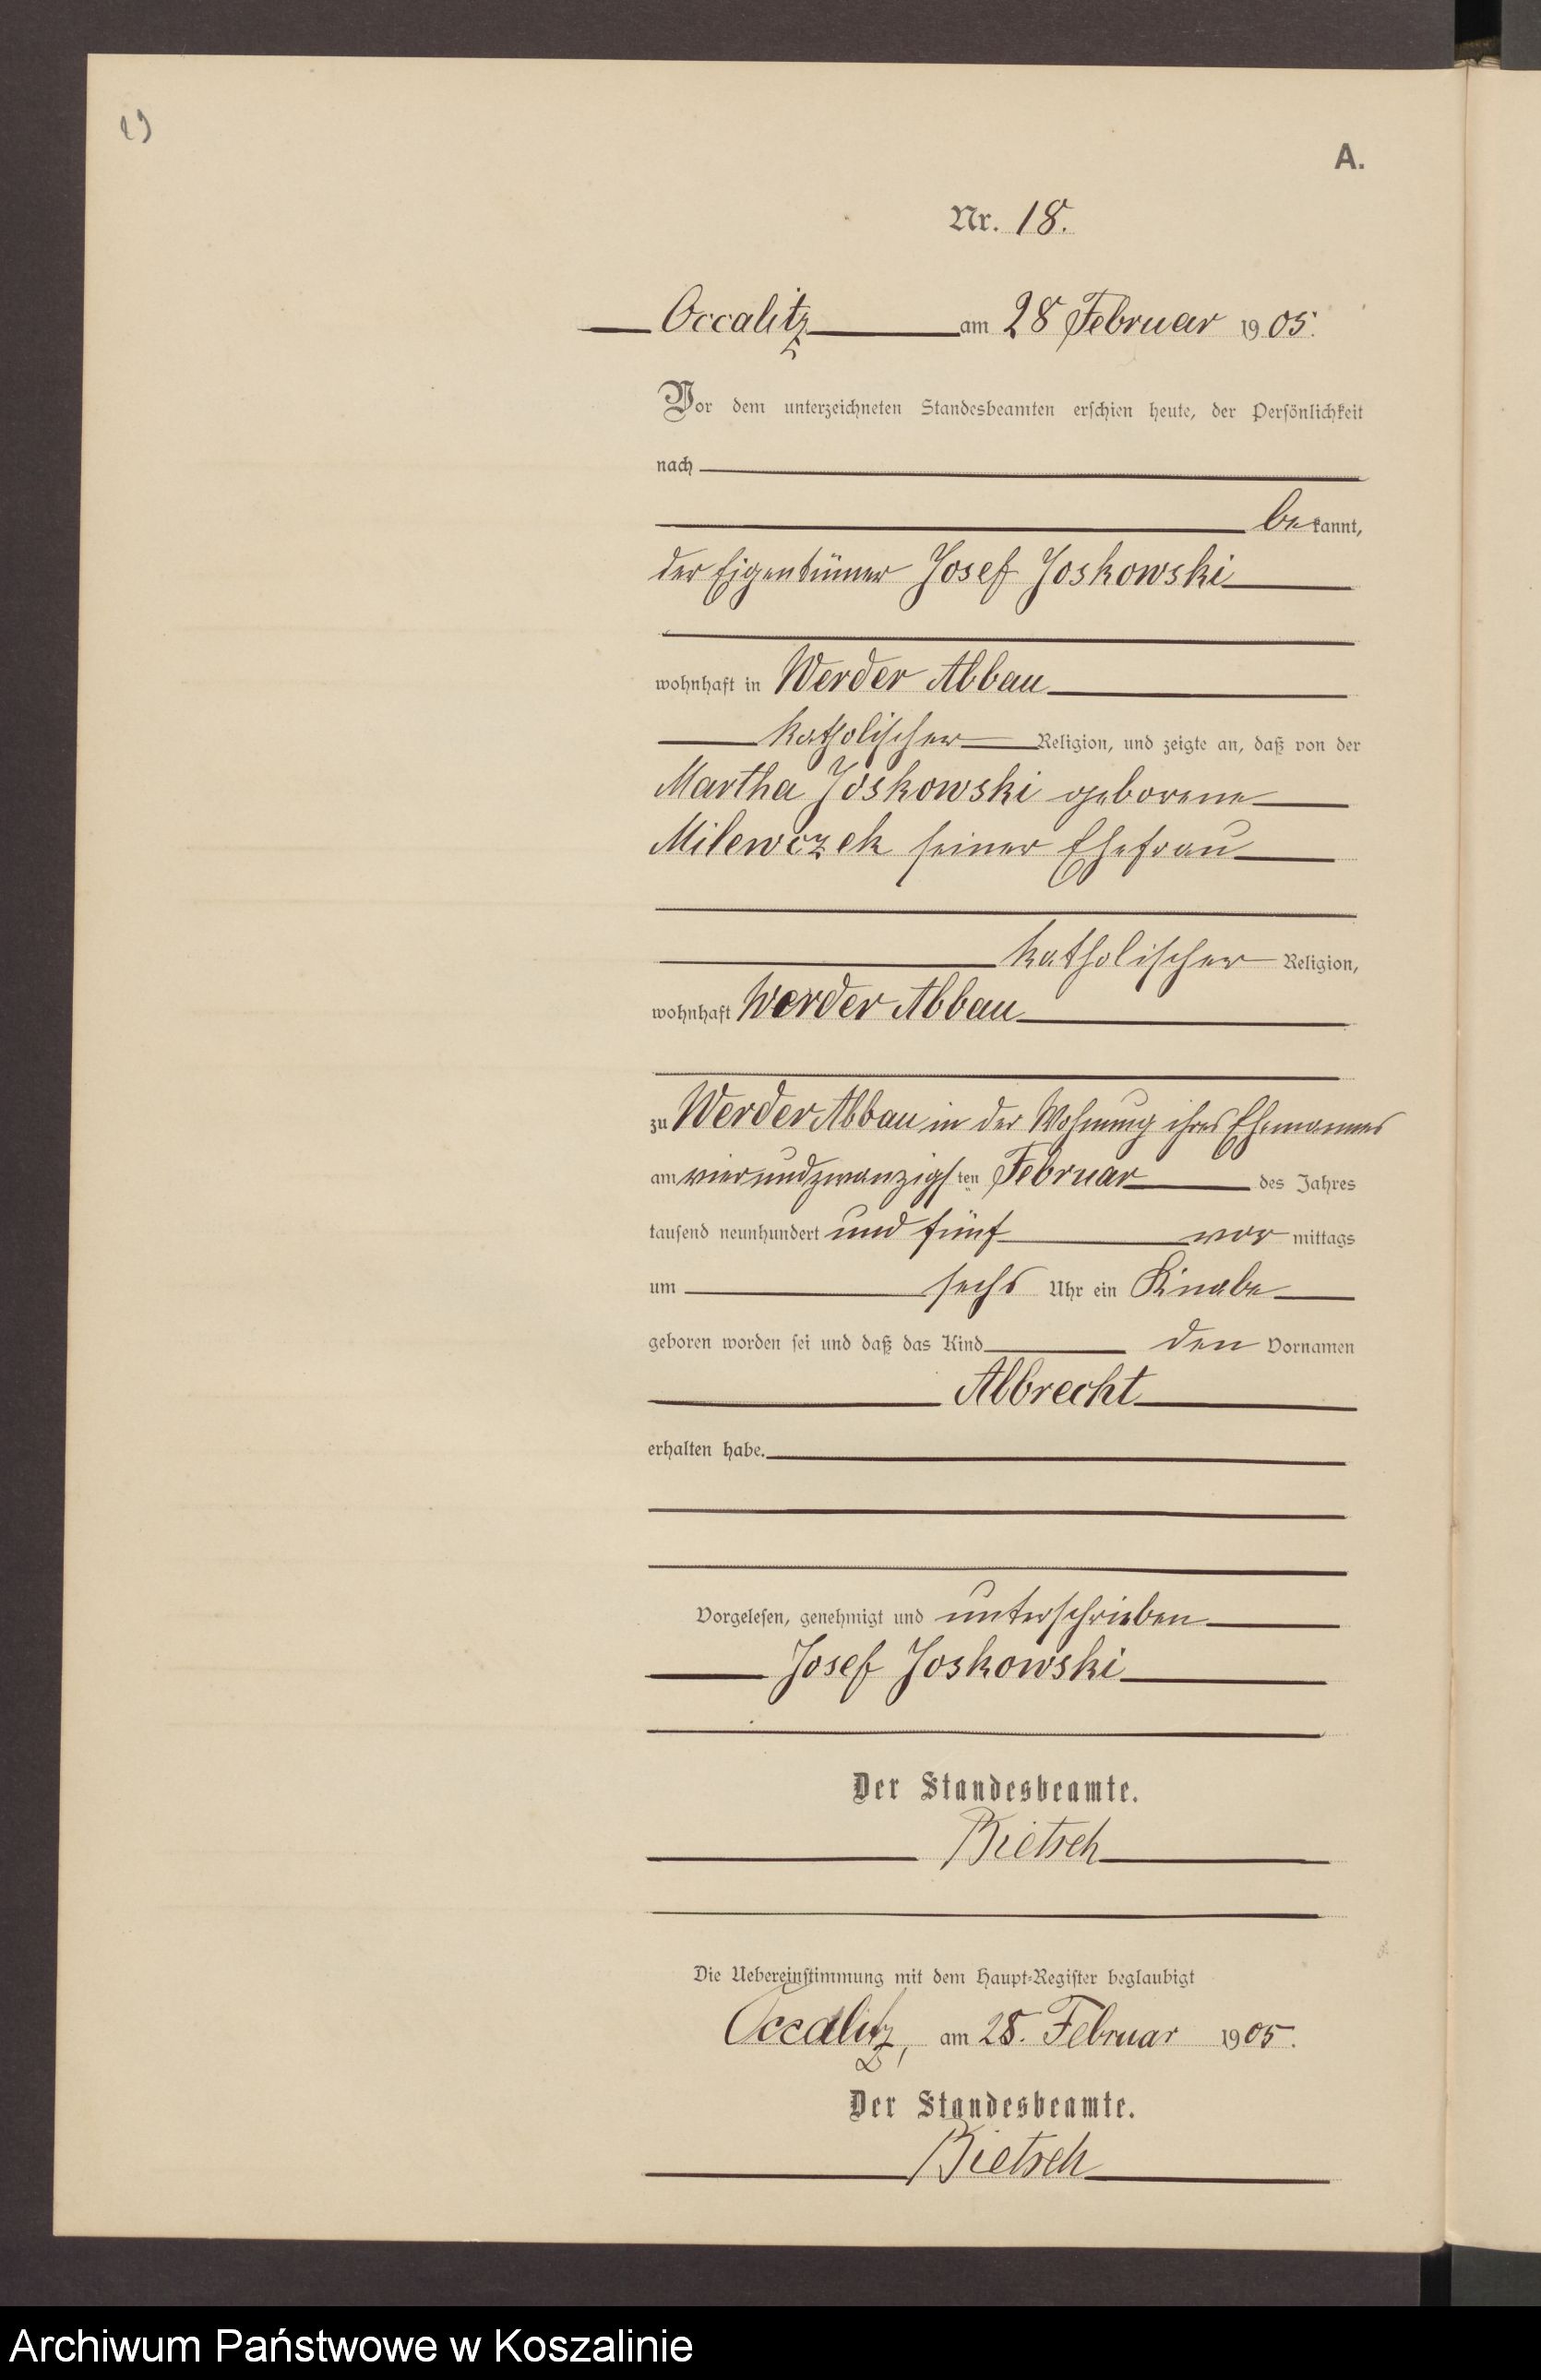 A.
Nr. 18.
Occalitz am 28 Februar 1905.
Vor dem unterzeichneten Standesbeamten erschien heute, der Persönlichkeit
nach
bekannt,
der Eigentümer Josef Joskowski
wohnhaft in Werder Abbau
katholischer Religion, und zeigte an, daß von der
Martha Joskowski geborene
Milewczek seiner Ehefrau
katholischer Religion,
wohnhaft Werder Abbau
zu Werder Abbau in der Wohnung ihres Ehemannes
am vierundzwanzigsten Februar des Jahres
tausend neunhundert und fünf vor mittags
um sechs Uhr ein Knabe
geboren worden sei und daß das Kind den Vornamen
Albrecht
erhalten habe.
Vorgelesen, genehmigt und unterschrieben
Josef Joskowski
Der Standesbeamte.
Bietsch
Die Uebereinstimmung mit dem Haupt-Register beglaubigt
Occalitz, am 28. Februar 1905.
Der Standesbeamte.
Bietsch
Archiwum Państwowe w Koszalinie